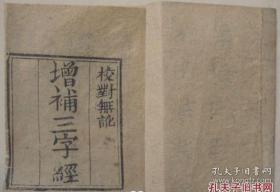 校對無訛
增補三字經
孔夫子旧书网